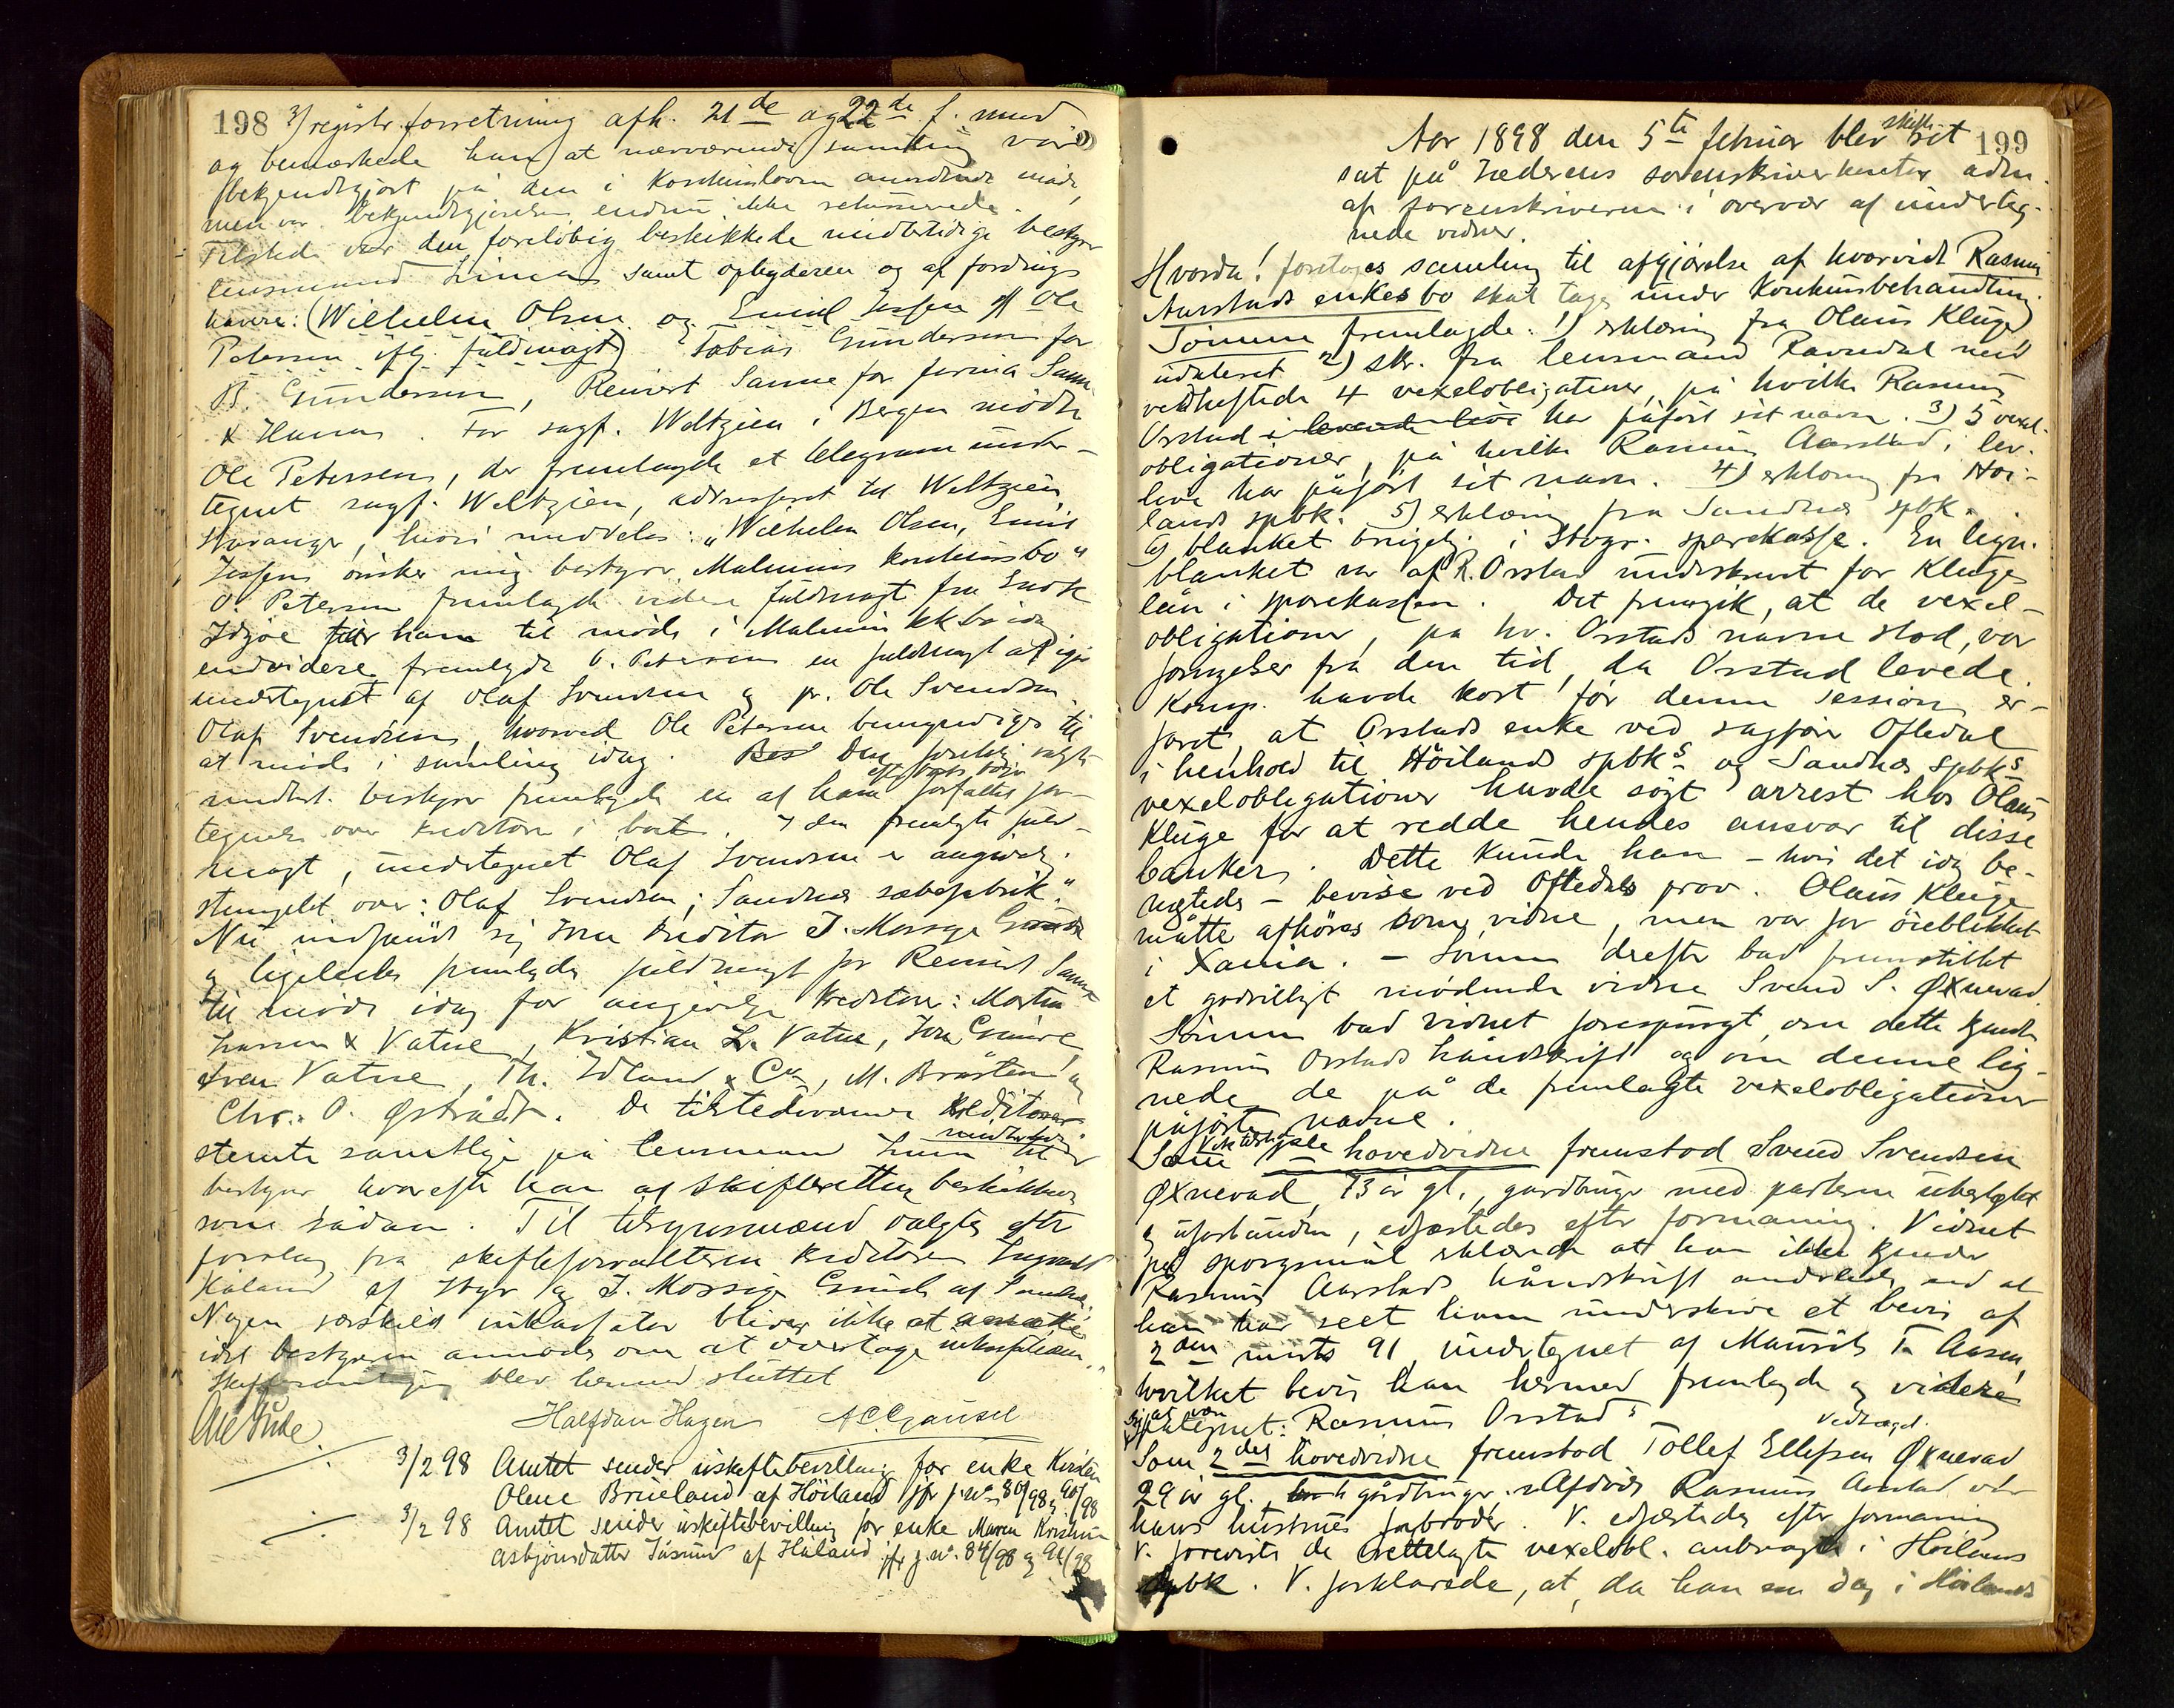 198
3/ registr.forretning afh. 21de og 22de f. mnd
og bemærkede han at nærværende samling var
bekjendtgjort på den i Konkursloven anordnede måde,
men var bekjendtgjørelsen endnu ikke returnerede.
Tilstede var den foreløbig beskikkede midlertidige bestyrer
lensmand Lima samt opbyderen og af fordrings
havere: (Wilhelm Olsen og Emil Jessen v/ Ole
Petersen iflg. fuldmagt) Tobias Gundersen for
B. Gundersen, Reinert Sanne for firma Sanne
& Hanas. For sagf. Weltzien i Bergen mødte
Ole Petersen, der fremlagde et telegram under-
tegnet sagf. Weltzien, adresseret til Weltzien
Stavanger, hvori meddeles: „Wilhelm Olsen, Emil
Jessen ønsker mig bestyrer Malmins konkursbo"
O. Petersen fremlagde videre fuldmagt fra Endre
Idsøe for ham til møde i Malmins kkbo idag
endvidere fremlagde O. Petersen en fuldmagt
undertegnet af Olaf Svendsen og pr. Ole Svendsen
Olaf Svendsen, hvorved Ole Petersen bemyndiges til
at møde i samling idag. Den foreløbig valgte
midlert. bestyrer fremlagde en af ham forfattet for-
tegnelse over kreditorer i boet. I den fremlagte fuld-
magt, undertegnet Olaf Svendsen er angivelig
stemplet over: Olaf Svendsen, Sandnes sæbefabrik."
Nu indfandt sig som kreditor J. Mossige Grude
og ligeledes fremlagdes fuldmagt for Reinert Sanne
til møde idag for angivelige kreditorer: Morten
Larsen & Vatne, Kristian L. Vatne, Jon Grude,
Sven Vatne, Th. Idland & Co, M. Bråsten og
Chr. O. Østrådt. De tilstedeværende kreditorer
stemte samtlige på lensmand Lima til midlertidig
bestyrer hvorefter han af skifteretten beskikkes
som sådan. Til tilsynsmænd valgtes efter
forslag fra skifteforvalteren kreditorerne
Håland af Stvgr og J. Mossige Grude af Sandnes.
Nogen særskilt inkassator bliver ikke at ansætte
idet bestyreren anmodes om at overtage inkassationen.
Skiftesamlingen blev hermed sluttet
Halfdan Hagen A C Gausel
3/2 98 Amtet sender uskiftebevilling for enke Kirsten
Olene Brueland af Høiland jfr j.no 80/98 og 90/98
3/2 98 Amtet sender uskiftebevilling for enke Maren Kristine
Asbjørnsdatter af Håland jfr j.no. 84/98 og 91/98
199
Aar 1898 den 5te februar blev skifteret
sat på Jæderens sorenskriverkontor adm.
af sorenskriveren i overvær af underteg-
nede vidner.
Hvorda! foretoges samling til afgjørelse af hvorvidt Rasmus
Aarstads enkes bo skal tages under Konkursbehandling.
Sømme fremlagde: 1) erklæring fra Olaus Kluge
udateret 2) skr. fra lensmand Ravndal med
vedheftede 4 vexelobligationer, på hvilke Rasmus
Orstad i levende live har påført sit navn. 3) 5 vexel-
obligationer, på hvilke Rasmus Aarstad i lev.
live har påført sit navn. 4) erklæring fra Høi-
lands spbk. 5) erklæring fra Sandnes spbk.
6) blanket brugelig i Stvgr. sparekasse. En lign.
blanket var af R. Orstad underskrevet for Kluges
lån i sparekassen. Det fremgik, at de vexel-
obligationer, på hv. Orstads navne stod, var
fornyelser fra den tid, da Orstad levede.
Komp. havde kort før denne session er-
faret, at Orstads enke ved sagfører Oftedal
i henhold til Höilands spbks og Sandnes spbks
vexelobligationer havde søgt arrest hos Olaus
Kluge for at redde hendes ansvar til disse
banker. Dette kunde han – hvis det idag be-
nægtedes – bevise ved Oftedals prov. Olaus Kluge
måtte afhøres som vidne, men var for öieblikket
i Xania. – Sømme derefter bad fremstillet
et godvilligt mødende vidne Svend S. Øxnevad.
Sömme bad vidnet forespurgt, om dette kjendte
Rasmus Orstads håndskrift og om denne lig-
nede de på de fremlagte vexelobligationer
påførte navne.
Som 1ste hovedvidne fremstod Svend Svendsen
Øxnevad, 73 år gl., gårdbruger med parterne ubeslægtet
og uforbunden, edfæstedes efter formaning. Vidnet
på spørgsmål erklærede at han ikke kjender
Rasmus Aarstads håndskrift anderledes end at
han har seet ham underskrive et bevis af
2den marts 91 undertegnet af Mauritz T. Aasen,
hvilket bevis han hermed fremlagde og videre
Rasmus Orstads
Som 2det hovedvidne fremstod Tollef Ellefsen Øxnevad
29 år gl., gårdbruger. Afdøde Rasmus Aarstad var
hans hustrues farbroder. V. edfæstedes efter formaning
V. forevistes de fremlagte vexelobl. anbragte i Høilands
Spbk. V. forklarede, at, da han en dag i Høilands